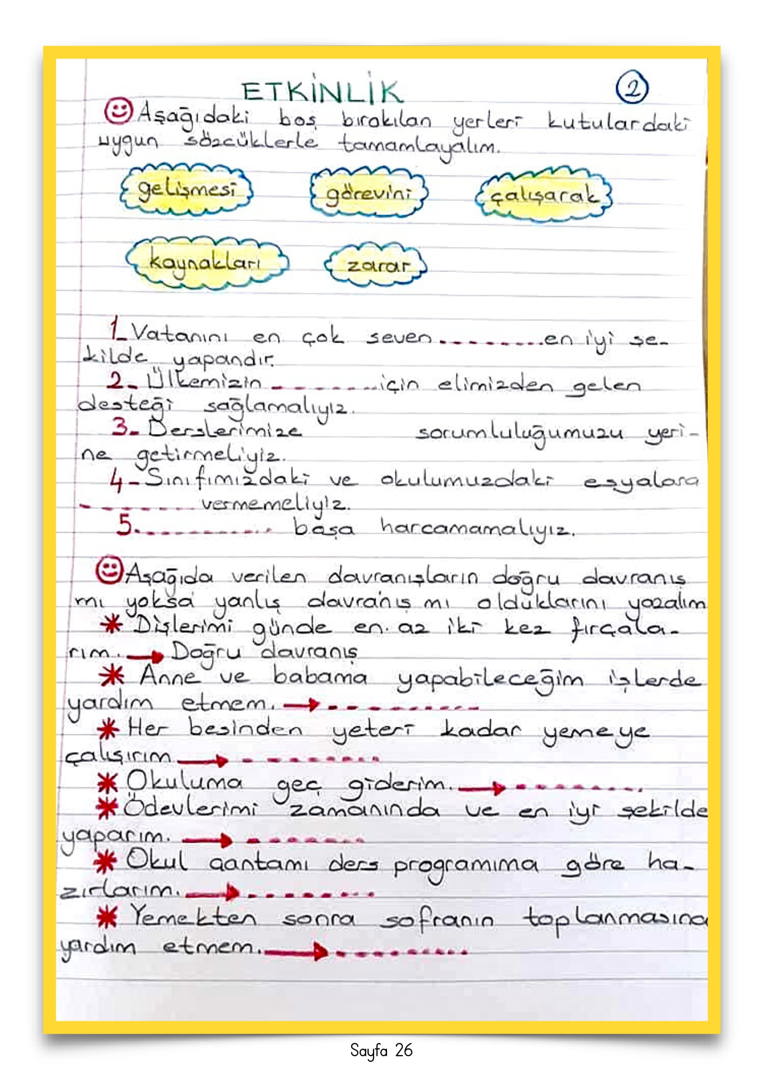 ETKİNLİK
2
Aşağıdaki boş bırakılan yerleri kutulardaki
uygun sözcüklerle tamamlayalım.
gelişmesi görevini çalışarak
kaynakları zarar
1_ Vatanını en çok seven ........ en iyi şe-
kilde yapandır.
2_ Ülkemizin ........ için elimizden gelen
desteği sağlamalıyız.
3_ Derslerimize sorumluluğumuzu yeri-
ne getirmeliyiz.
4_ Sınıfımızdaki ve okulumuzdaki eşyalara
........ vermemeliyiz.
5. ........ boşa harcamamalıyız.
Aşağıda verilen davranışların doğru davranış
mı yoksa yanlış davranış mı olduklarını yazalım
* Dişlerimi günde en az iki kez fırçala-
rım. → Doğru davranış
* Anne ve babama yapabileceğim işlerde
yardım etmem. → ........
* Her besinden yeteri kadar yemeye
çalışırım → ........
* Okuluma geç giderim. → ........
* Ödevlerimi zamanında ve en iyi şekilde
yaparım. → ........
* Okul çantamı ders programıma göre ha-
zırlarım. → ........
* Yemekten sonra sofranın toplanmasına
yardım etmem. → ........
Sayfa 26